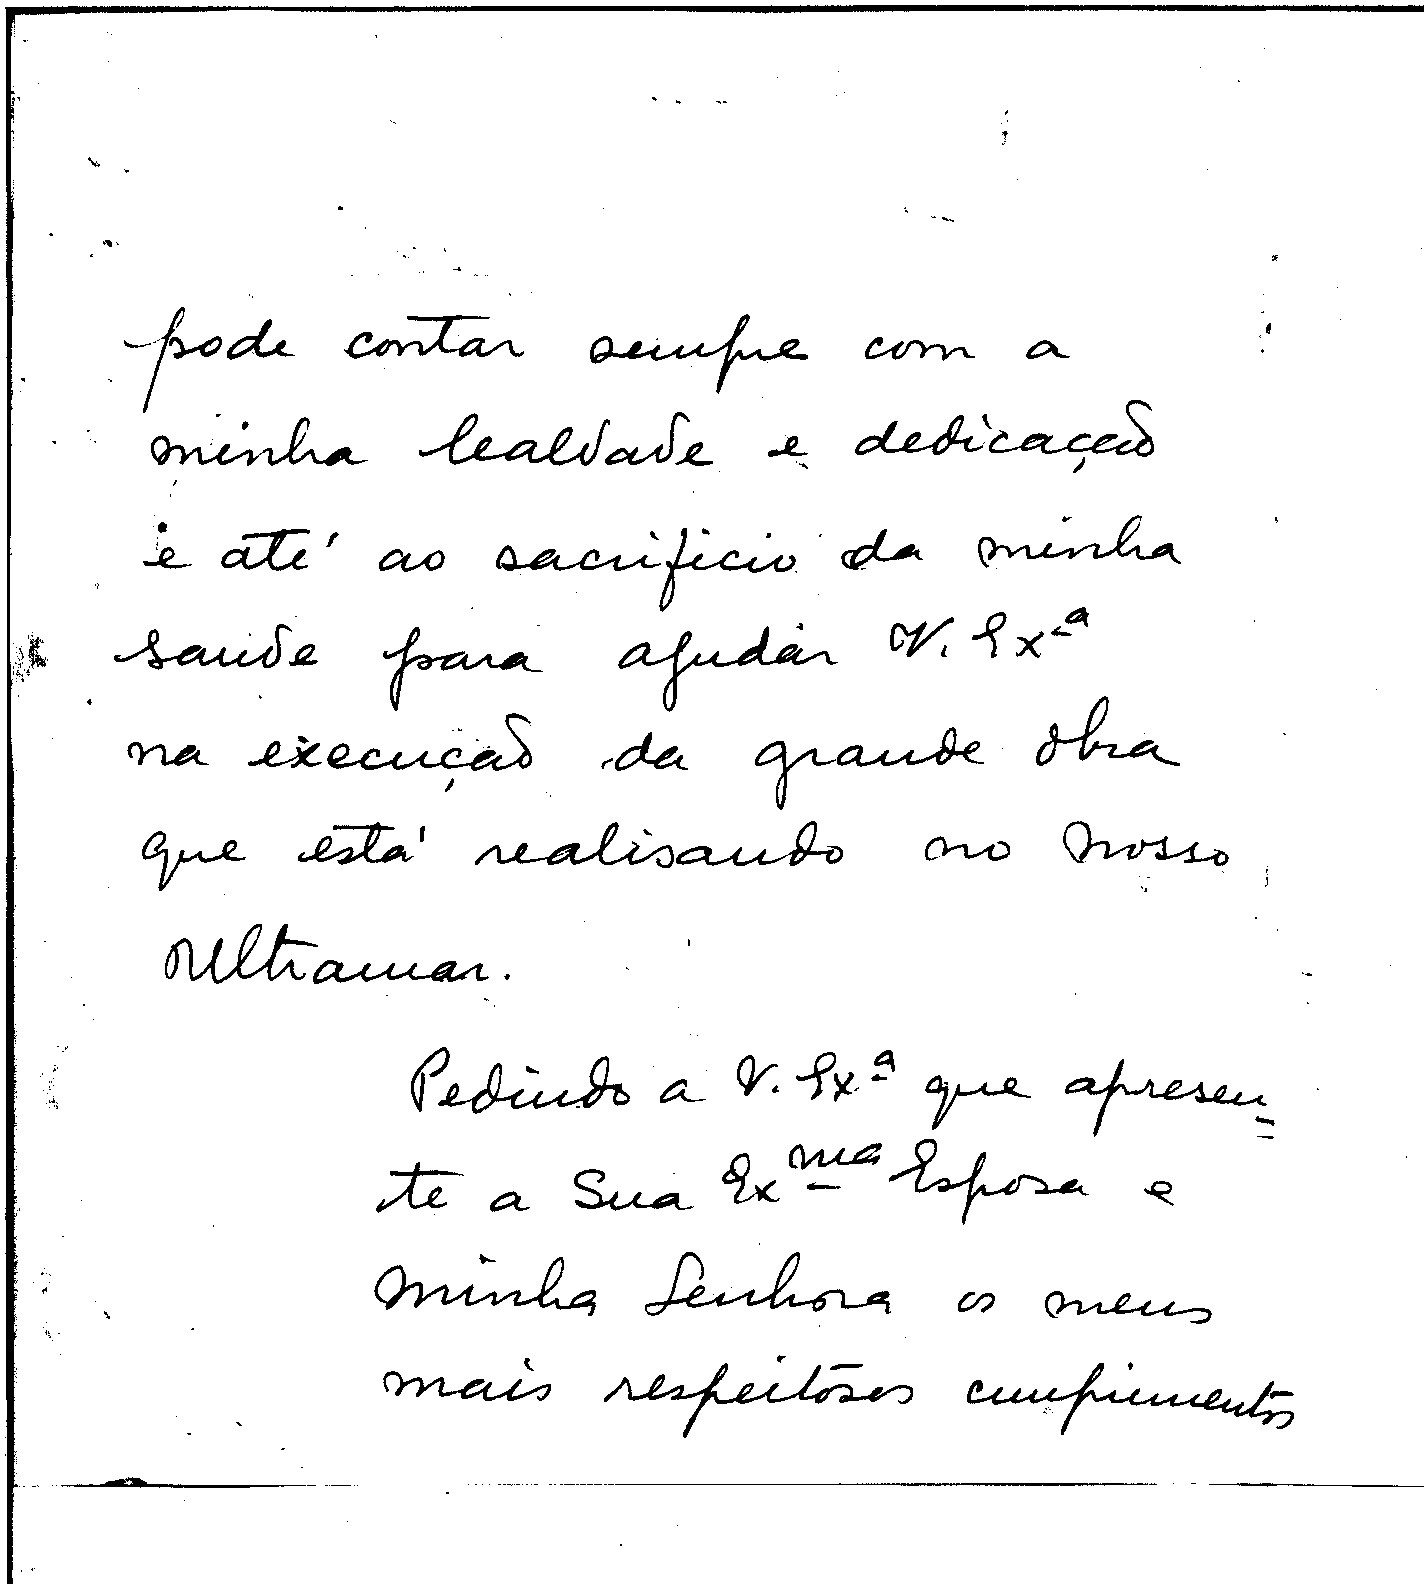 pode contar sempre com a
minha lealdade e dedicação
e até ao sacrificio da minha
saude para ajudar V. Exª
na execução da grande obra
que está realisando no nosso
Ultramar.
Pedindo a V. Exª que apresen=
te a Sua Exma Esposa e
minha Senhora os meus
mais respeitosos cumprimentos